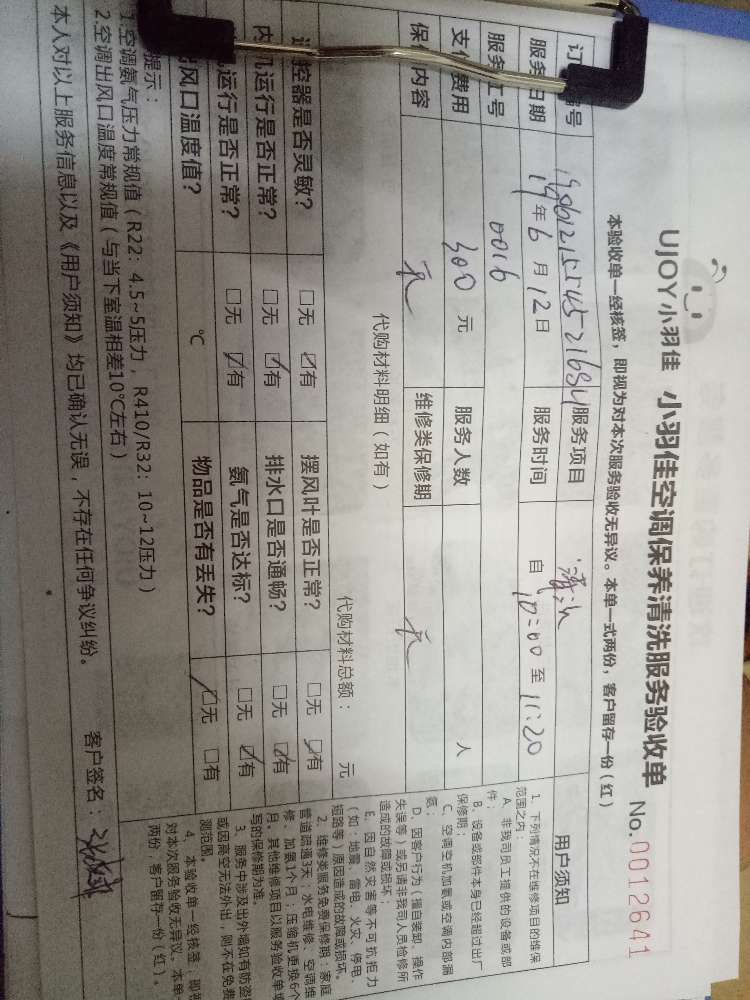 UJOY小羽佳 小羽佳空调保养清洗服务验收单 No.0012641
本验收单一经核签，即视为对本次服务验收无异议。本单一式两份，客户留存一份（红）
订 号 服务项目 清洗
服务日期 19年6月12日 服务时间 自10:00至11:20
服务 工号 0016
支付费用 300元 服务人数 人
保修内容 无 维修类保修期 无
代购材料明细（如有） 代购材料总额： 元
遥控器是否灵敏？ □无 ☑有 摆风叶是否正常？ □无 ☑有
内机运行是否正常？ □无 ☑有 排水口是否通畅？ □无 ☑有
机运行是否正常？ □无 ☑有 氨气是否达标？ □无 ☑有
出风口温度值？ ℃ 物品是否有丢失？ ☑无 □有
提示：
1.空调氨气压力常规值（R22：4.5~5压力，R410/R32：10~12压力）
2.空调出风口温度常规值（与当下室温相差10℃左右）
本人对以上服务信息以及《用户须知》均已确认无误，不存在任何争议纠纷。 客户签名：
用户须知
1、下列情况不在维修项目的维保
范围之内：
A、非我司员工提供的设备或部
件；
B、设备或部件本身已经超过出厂
保修期；
C、空调空机加氨或空调内部漏
氨；
D、因客户行为（擅自装卸、操作
失误等）或另请非我司人员检修所
造成的故障或损坏；
E、因自然灾害等不可抗拒力
（如：地震、雷电、火灾、停电、
短路等）原因造成的故障或损坏。
2、维修类服务免费保修期：家庭
管道疏通3天；水电维修、空调维
修、加氨1个月；压缩机更换6个
月。其他维修项目以服务验收单填
写的保修期为准。
3、服务中涉及出外墙如有防盗
或因高空无法外出，则不在免费
测范围。
4、本验收单一经核签，即视
对本次服务验收无异议。本单一
两份，客户留存一份（红）。